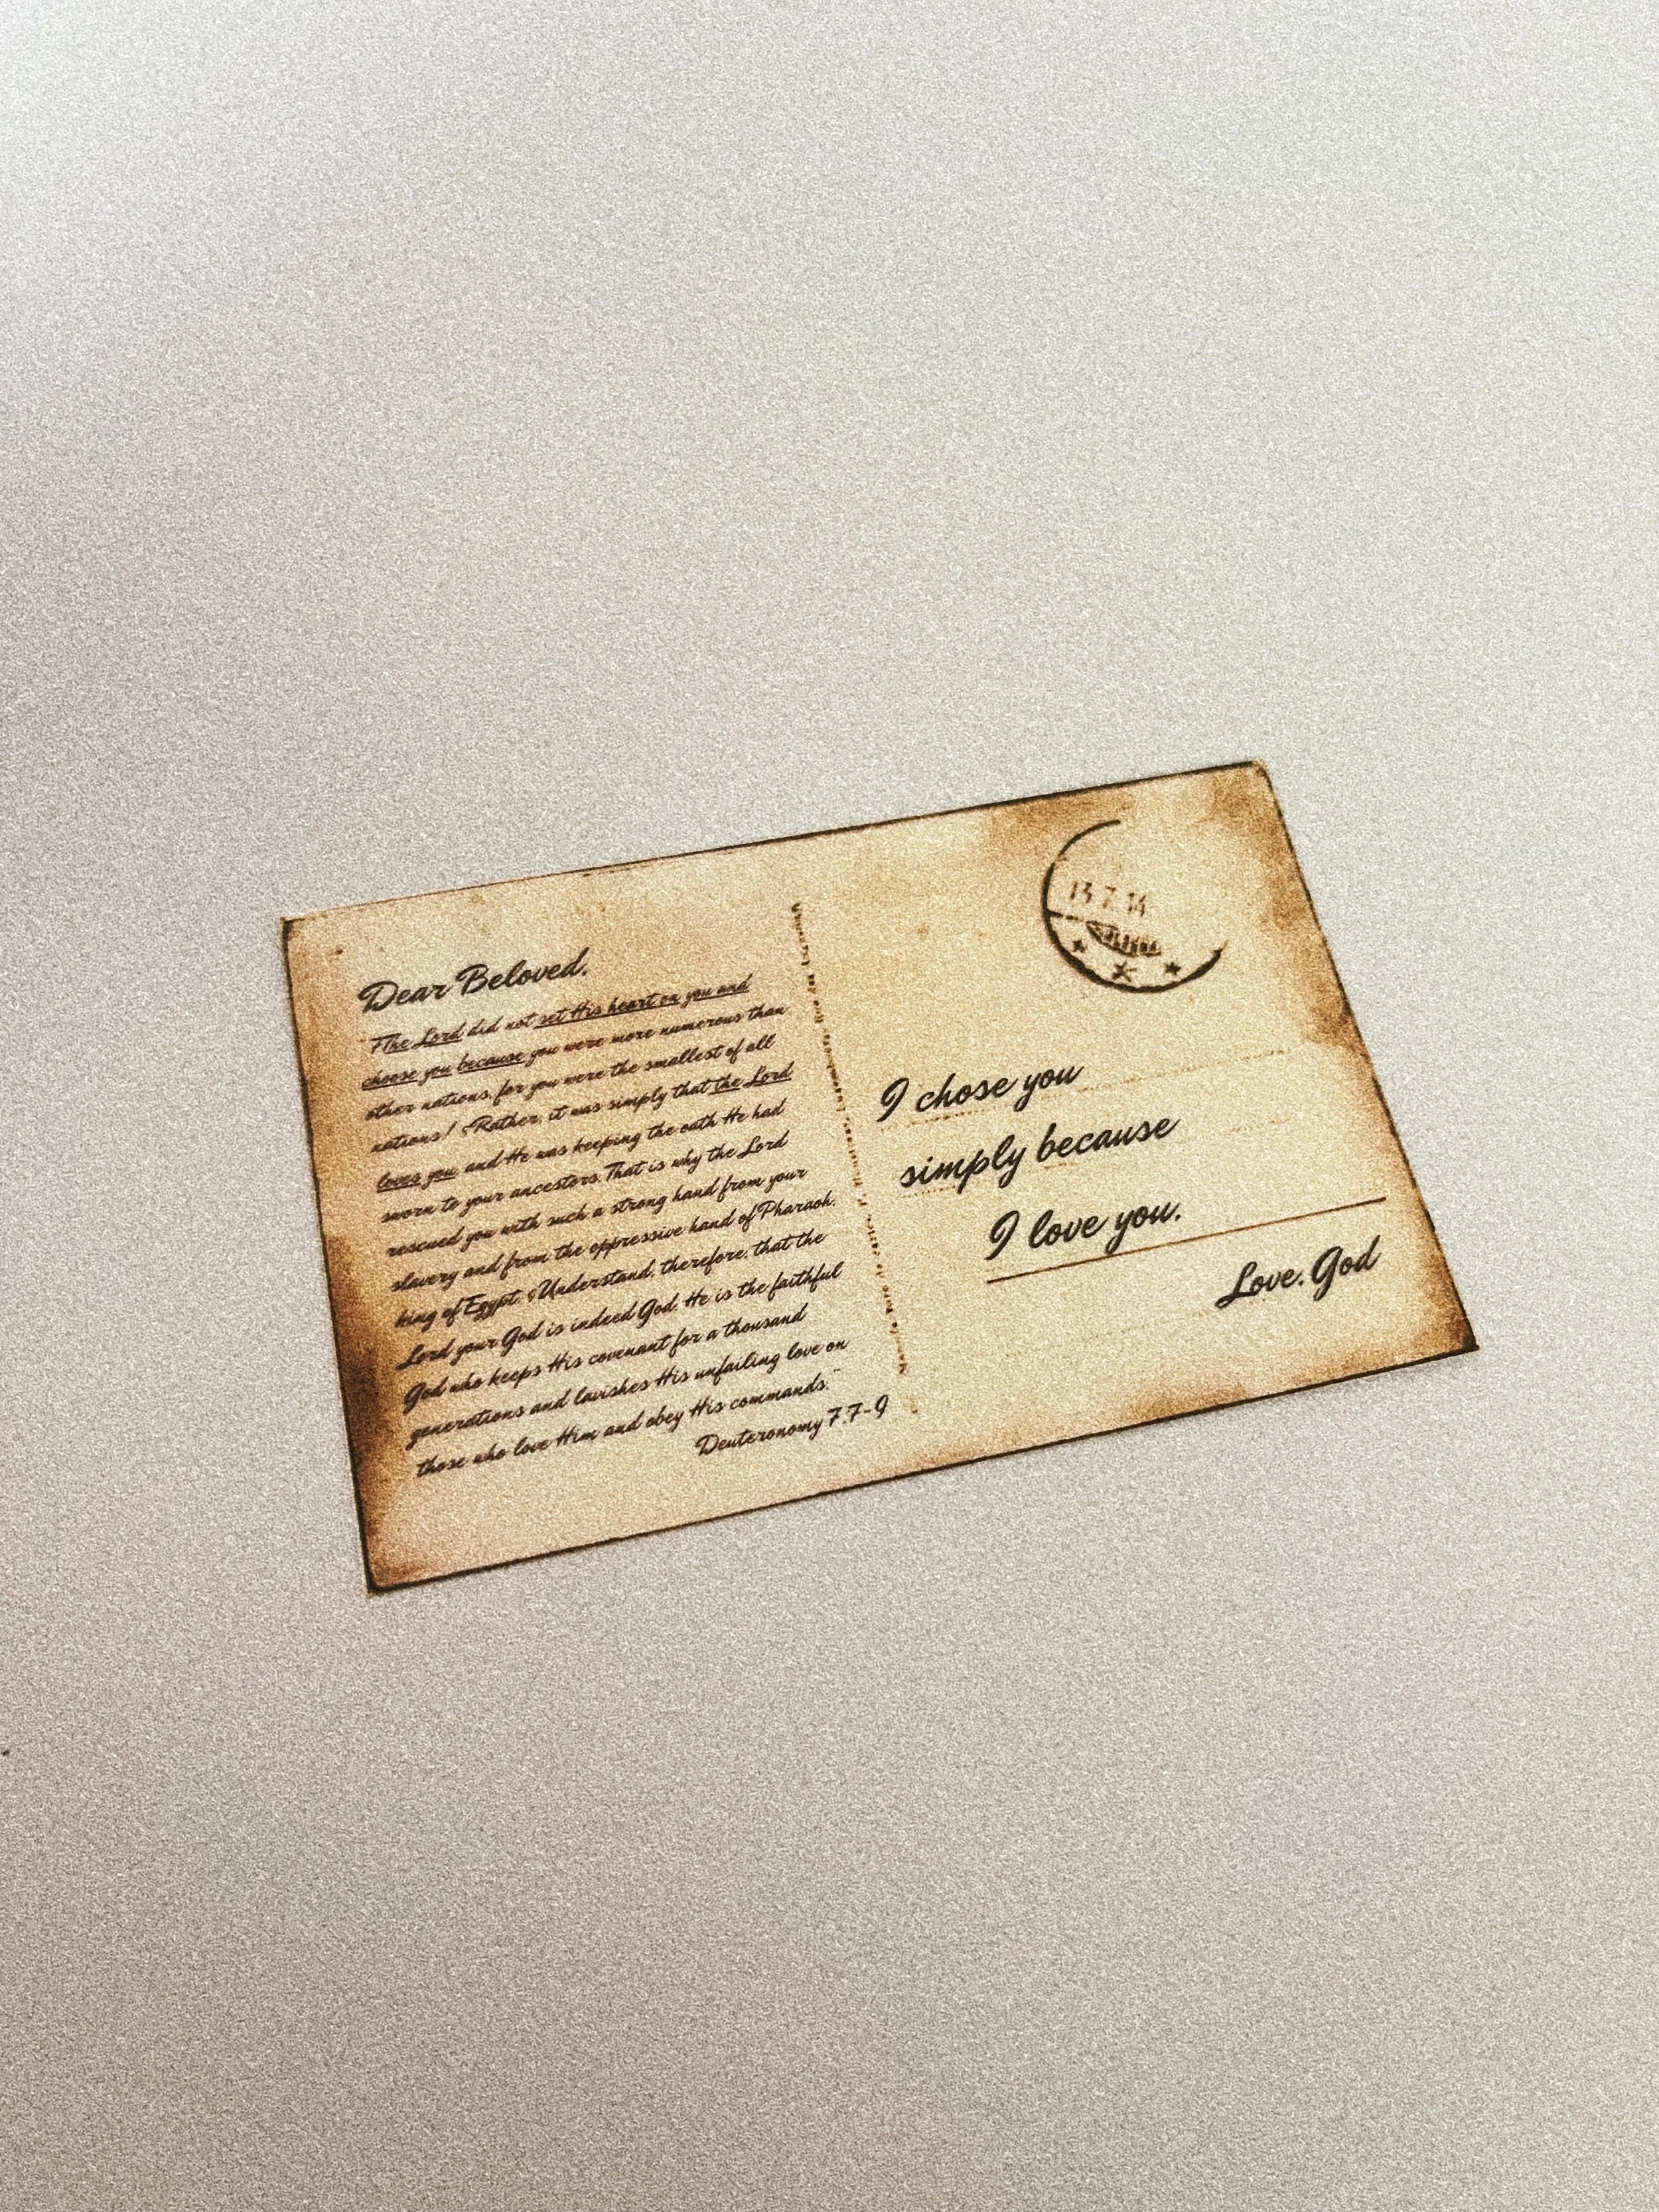 Dear Beloved,
"7The Lord did not set His heart on you and
choose you because you were more numerous than
other nations, for you were the smallest of all
nations! 8Rather, it was simply that the Lord
loves you, and He was keeping the oath He had
sworn to your ancestors. That is why the Lord
rescued you with such a strong hand from your
slavery and from the oppressive hand of Pharaoh,
king of Egypt. 9Understand, therefore, that the
Lord your God is indeed God. He is the faithful
God who keeps His covenant for a thousand
generations and lavishes His unfailing love on
those who love Him and obey His commands."
Deuteronomy 7:7-9
13.7.14
I chose you
simply because
I love you.
Love, God